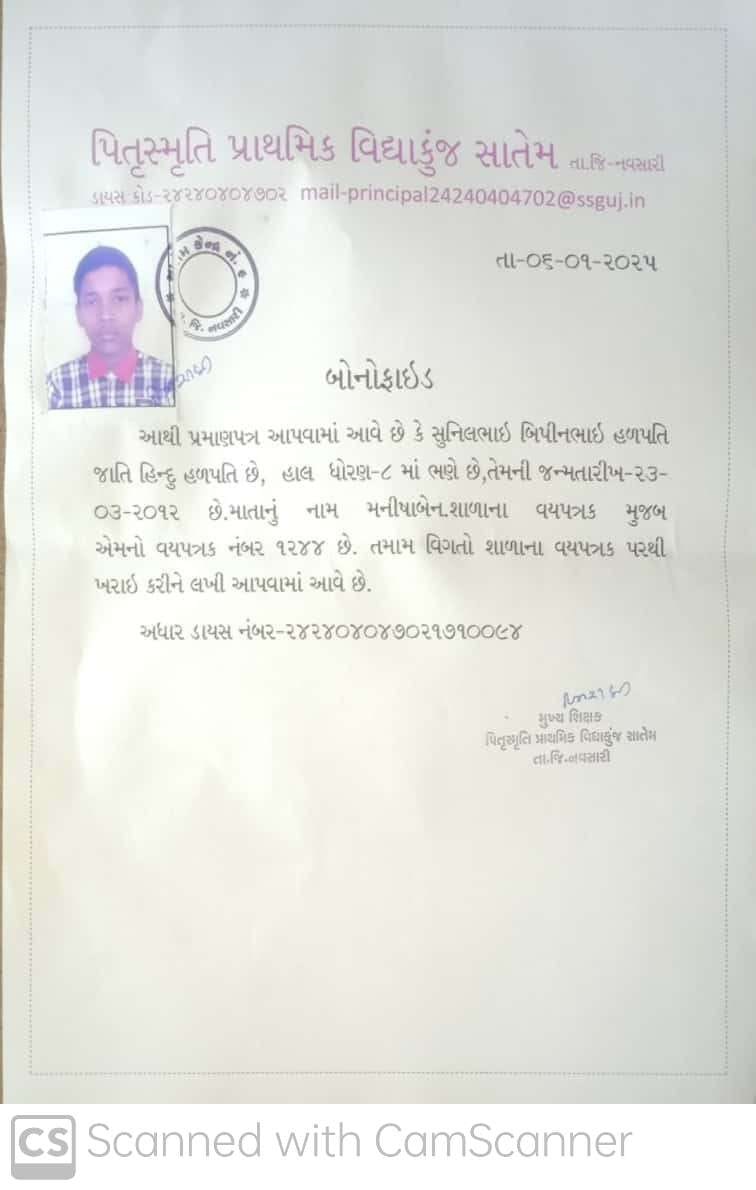 પિતૃસ્મૃતિ પ્રાથમિક વિદ્યાકુંજ સાતેમ તા.જિ-નવસારી
ડાયસ કોડ-૨૪૨૪૦૪૦૪૭૦૨ mail-principal24240404702@ssguj.in
કેન્દ્ર નં. ૯
જિ. નવસારી
તા-૦૬-૦૧-૨૦૨૫
બોનોફાઇડ
આથી પ્રમાણપત્ર આપવામાં આવે છે કે સુનિલભાઇ બિપીનભાઇ હળપતિ
જાતિ હિન્દુ હળપતિ છે, હાલ ધોરણ-૮ માં ભણે છે,તેમની જન્મતારીખ-૨૩-
૦૩-૨૦૧૨ છે.માતાનું નામ મનીષાબેન.શાળાના વયપત્રક મુજબ
એમનો વયપત્રક નંબર ૧૨૪૪ છે. તમામ વિગતો શાળાના વયપત્રક પરથી
ખરાઇ કરીને લખી આપવામાં આવે છે.
અધાર ડાયસ નંબર-૨૪૨૪૦૪૦૪૭૦૨૧૭૧૦૦૯૪
મુખ્ય શિક્ષક
પિતૃસ્મૃતિ પ્રાથમિક વિદ્યાકુંજ સાતેમ
તા.જિ.નવસારી
CS Scanned with CamScanner